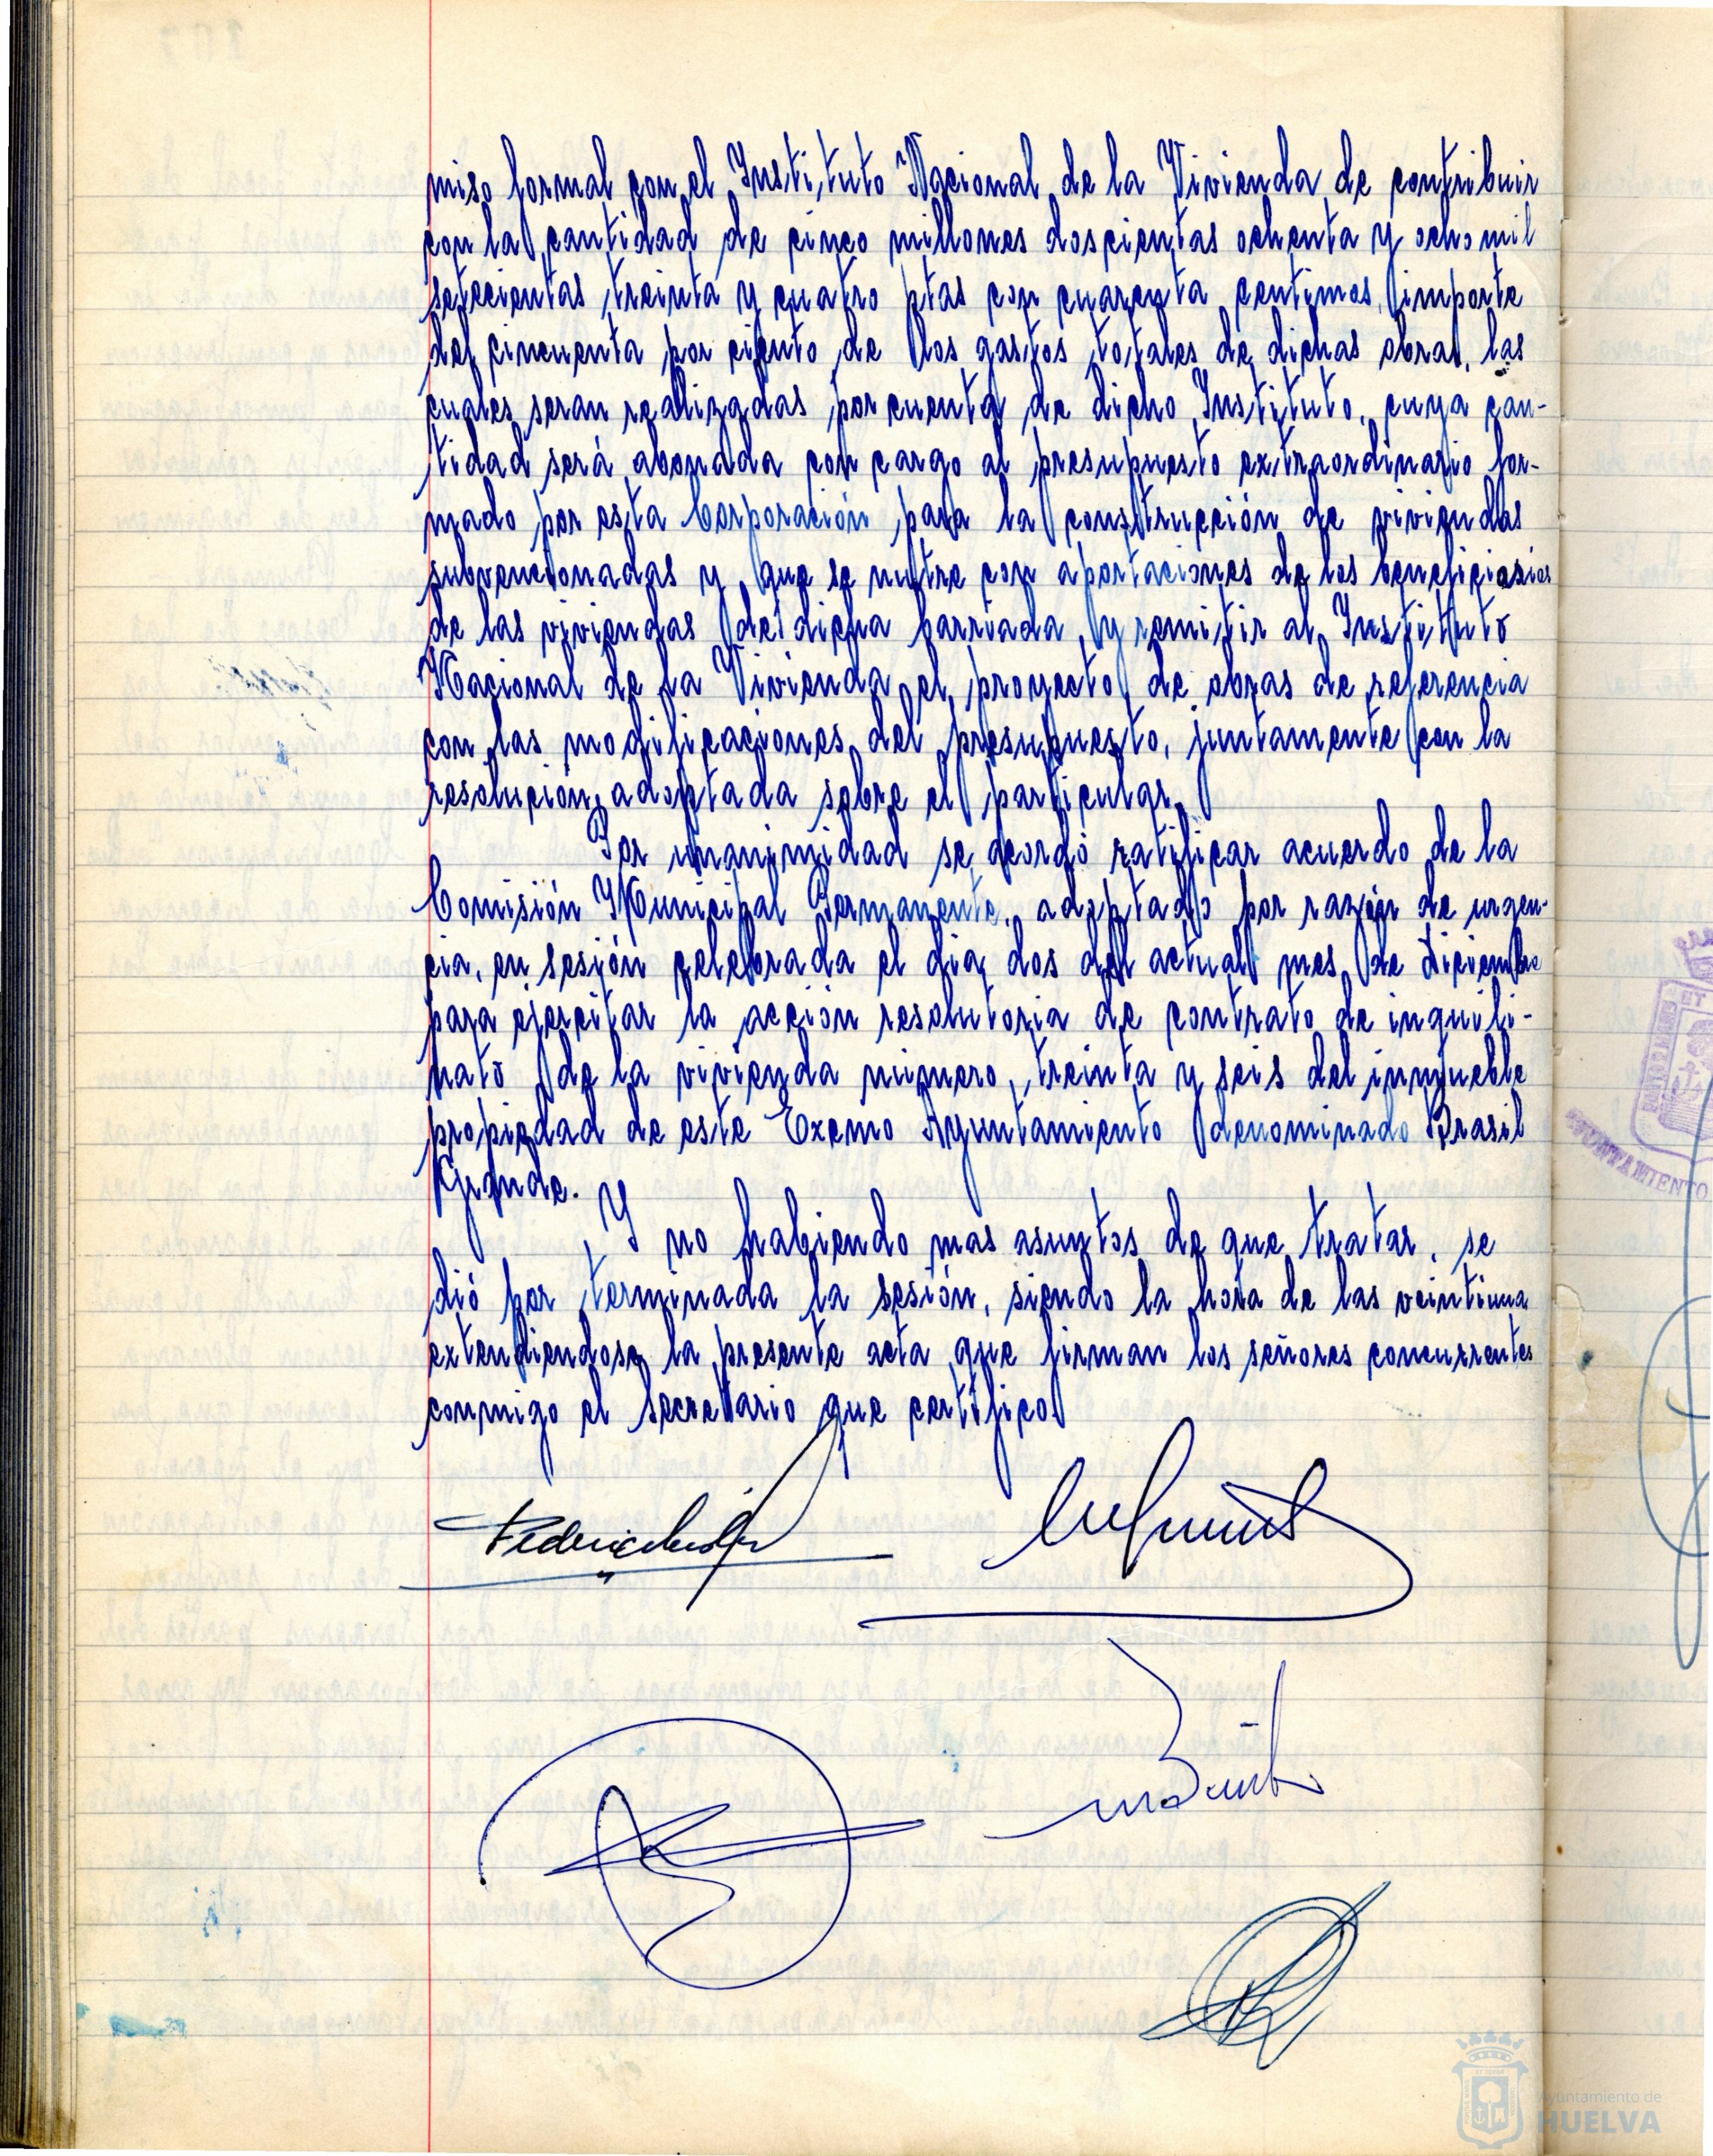 miso formal con el Instituto Nacional de la Vivienda de contribuir
con la cantidad de cinco millones doscientas ochenta y ocho mil
setecientas treinta y cuatro ptas con cuarenta centimos, importe
del cincuenta por ciento de los gastos totales de dichas obras, las
cuales seran realizadas por cuenta de dicho Instituto, cuya can-
tidad será abonada con cargo al presupuesto extraordinario for-
mado por esta Corporación para la construcción de viviendas
subvencionadas y que se nutre con aportaciones de los beneficiarios
de las viviendas de dicha barriada, y remitir al Instituto
Nacional de la Vivienda el proyecto de obras de referencia
con las modificaciones del presupuesto, juntamente con la
resolución adoptada sobre el particular.
Por unanimidad se acordó ratificar acuerdo de la
Comisión Municipal Permanente, adoptado por razón de urgen-
cia, en sesión celebrada el dia dos del actual mes de diciembre
para ejercitar la acción resolutoria de contrato de inquili-
nato de la vivienda número treinta y seis del inmueble
propiedad de este Excmo Ayuntamiento denominado Brasil
Grande.
Y no habiendo mas asuntos de que tratar, se
dió por terminada la sesión, siendo la hora de las veintiuna
extendiendose la presente acta que firman los señores concurrentes
conmigo el Secretario que certifico.
AYUNTAMIENTO
Ayuntamiento de
HUELVA